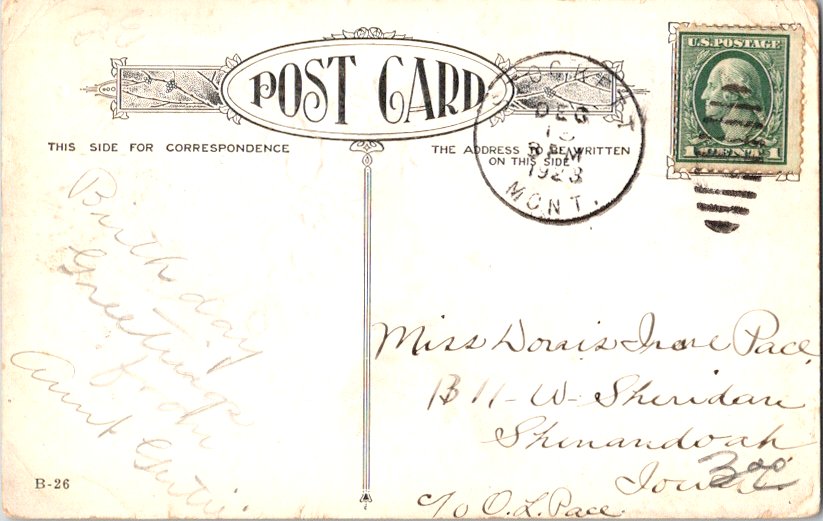 POST CARD
THIS SIDE FOR CORRESPONDENCE
THE ADDRESS TO BE WRITTEN
ON THIS SIDE
DEC
13
PM
1923
MONT.
U.S. POSTAGE
1 CENT 1
Birthday
Greetings
from
Aunt Gertie
Miss Dorris Irene Pace
W- Sheridan
Shenandoah
Iowa
3.00
c/o O. L. Pace
B-26